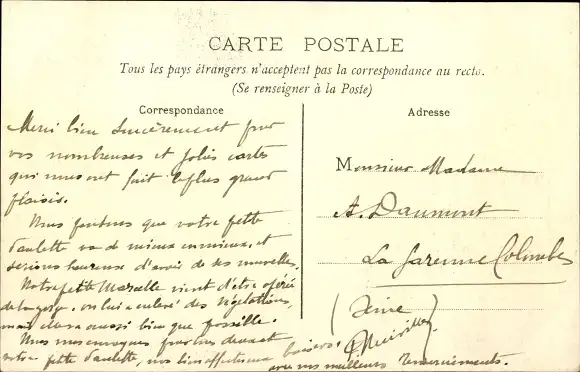 CARTE POSTALE
Tous les pays étrangers n'acceptent pas la correspondance au recto.
(Se renseigner à la Poste)
Correspondance
Merci bien sincèrement pour
vos nombreuses et jolies cartes
qui nous ont fait le plus grand
plaisir.
Nous que votre petite
Paulette va de mieux en mieux, et
serions heureux d'avoir de ses nouvelles.
Notre petite Marcelle vient d'être opérée
de la gorge. on lui a enlevé des végétations,
mais elle va aussi bien que possible.
Nous vous envoyons pour vous deux et
votre petite Paulette, nos bien affectueux baisers.
avec nos meilleurs remerciements.
Adresse
Monsieur Madame
A. Daumont
La Garenne Colombes
(Seine)